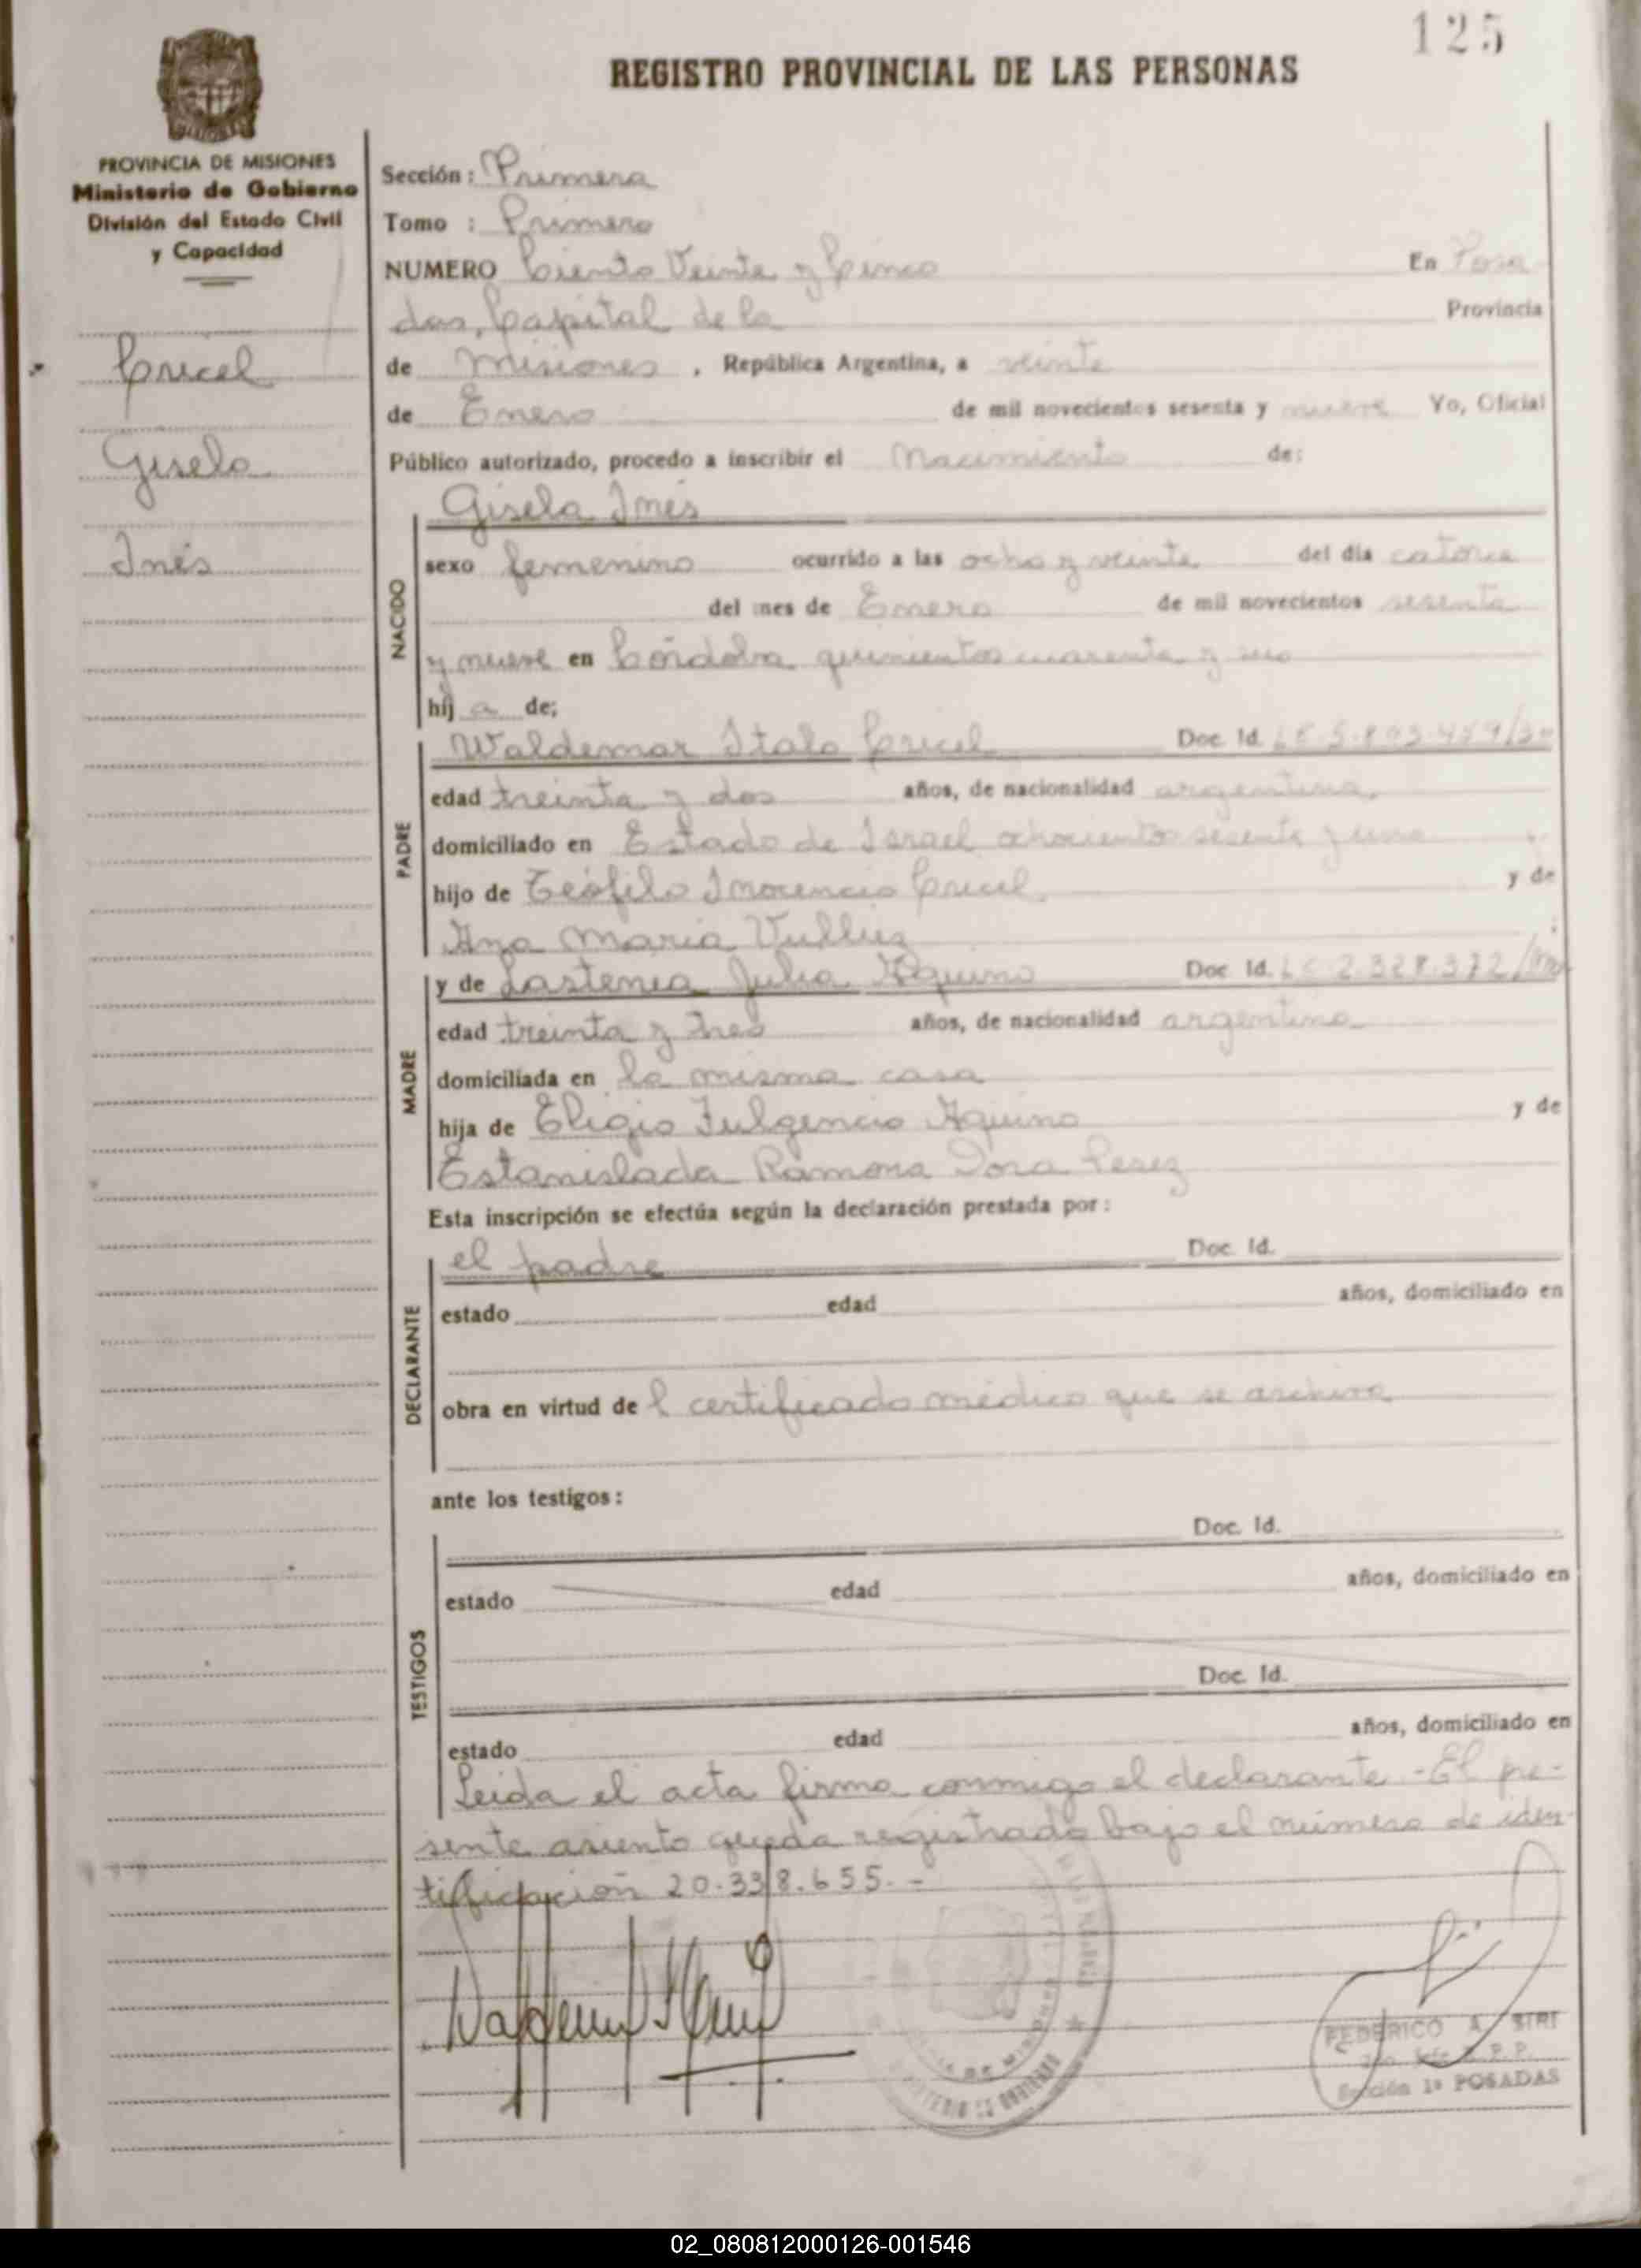 125
REGISTRO PROVINCIAL DE LAS PERSONAS
PROVINCIA DE MISIONES
Ministerio de Gobierno
División del Estado Civil
y Capacidad
Cricel
Gisela
Inés
Sección: Primera
Tomo : Primero
NUMERO Ciento Veinte y Cinco En Posa
das, Capital de la Provincia
de Misiones, República Argentina, a veinte
de Enero de mil novecientos sesenta y nueve Yo, Oficial
Público autorizado, procedo a inscribir el Nacimiento de:
NACIDO
Gisela Inés
sexo femenino ocurrido a las ocho y veinte del día catorce
del mes de Enero de mil novecientos sesenta
y nueve en Córdoba quinientos cuarenta y uno
hij a de;
PADRE
Waldemar Italo Cricel Doc. Id. LE
edad treinta y dos años, de nacionalidad argentina,
domiciliado en Estado de Israel ochocientos sesenta y uno
hijo de Teófilo Inocencio Cricel y de
Ana María
MADRE
y de Lastenia Julia Aquino Doc. Id. LC 2.328.372
edad treinta y tres años, de nacionalidad argentina
domiciliada en la misma casa
hija de Eligio Fulgencio Aquino y de
Estanislada Ramona Dora Perez
Esta inscripción se efectúa según la declaración prestada por:
DECLARANTE
el padre Doc. Id.
estado edad años, domiciliado en
obra en virtud de l certificado médico que se archiva
ante los testigos:
TESTIGOS
Doc. Id.
estado edad años, domiciliado en
Doc. Id.
estado edad años, domiciliado en
Leida el acta firma conmigo el declarante - El pre-
sente asiento queda registrado bajo el número de iden-
tificación 20.338.655.-
FEDERICO A. SIRI
Jefe R.P.P.
Sección 1ª POSADAS
02_080812000126-001546